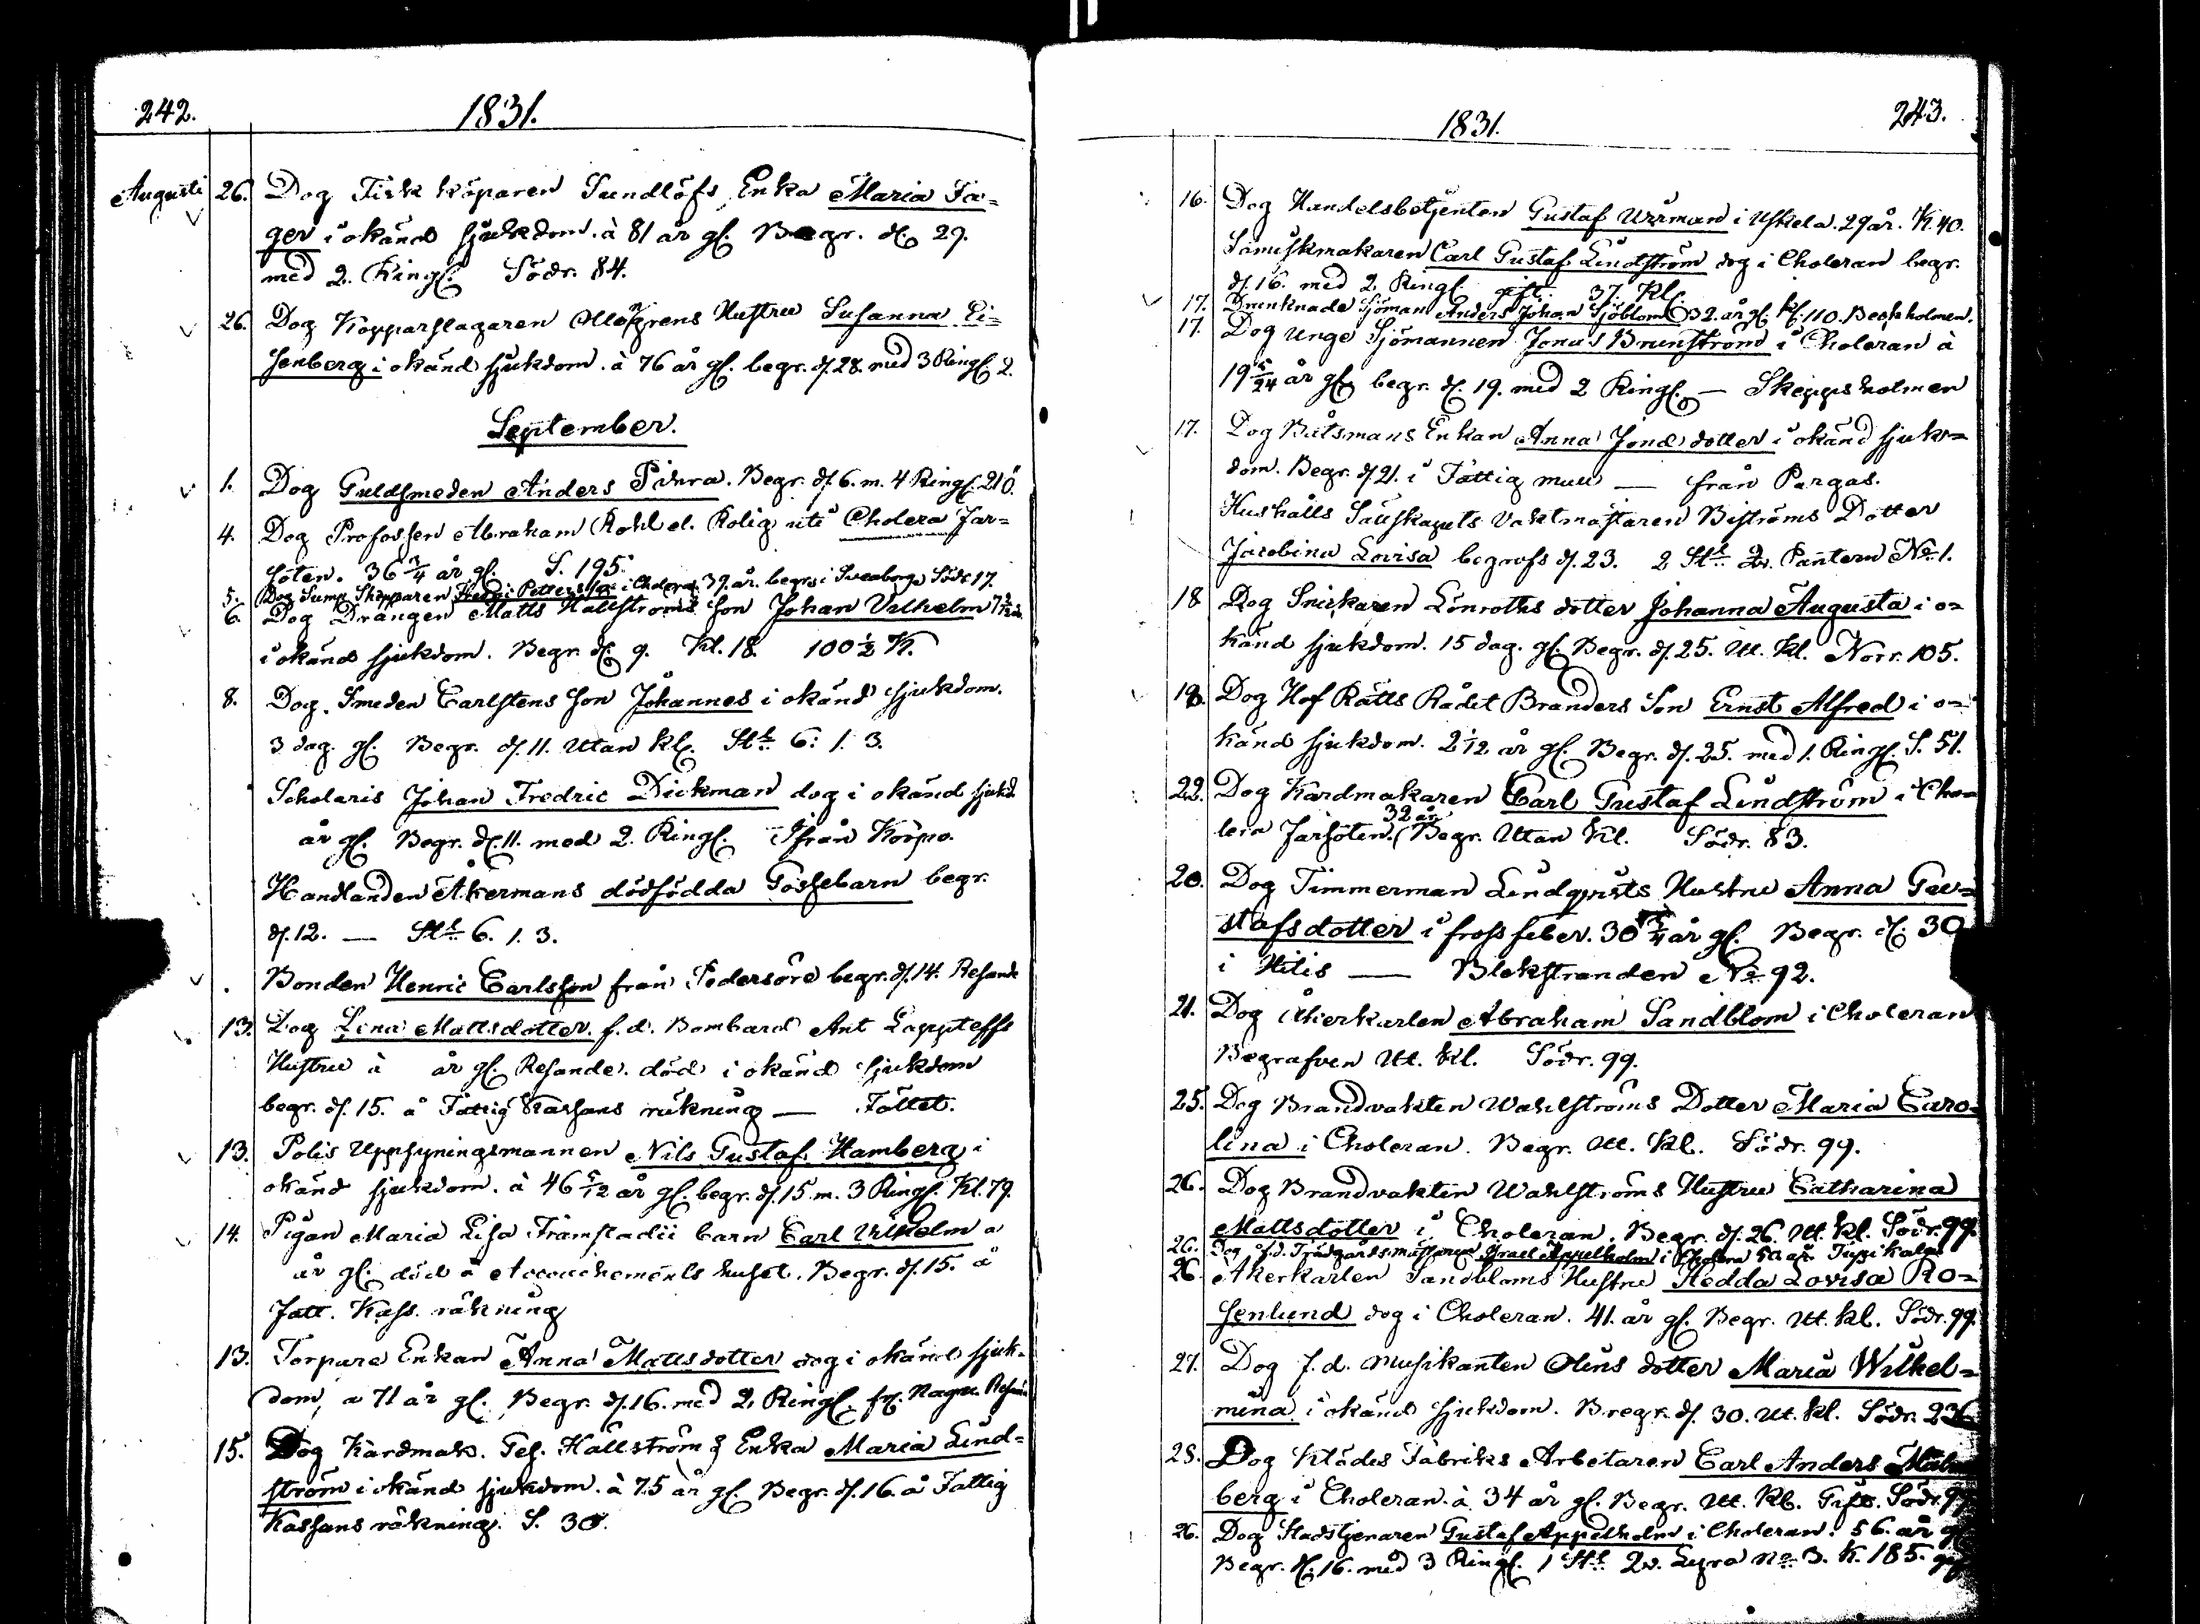 242.
1831.
Augusti 26. Dog Fisk köparen Sundlöfs Enka Maria Fa=
ger i okänd sjukdom. à 81 år gl. Begr. d. 29.
med 2. Ringl. Södr. 84.
26. Dog Kopparslagaren Hustru Susanna Ei=
senberg i okänd sjukdom. à 76 år gl. begr. d. 28. med 3 Ringl. 2.
September.
1. Dog Guldsmeden Anders Begr. d. 6. m. 4 Ringl. 210.
4. Dog Profossen Abraham Rohl el. Rolig uti Cholera Far=
soten. 36 3/4 år gl. S. 195.
5. Dog Sump Skepparen Petterson i Cholera 39 år. begrs i Sveaborg Södr 17.
6. Dog Drängen Matts Hallströms Son Johan Vilhelm
i okänd sjukdom. Begr. d. 9. Kl. 18. 100 1/2 K.
8. Dog Smeden Carlstens Son Johannes i okänd sjukdom.
3 dag. gl. Begr. d. 11. Utan kl. St. 6. 1. 3.
Scholaris Johan Fredric Dickman dog i okänd sjukd
år gl. Begr. d. 11. med 2. Ringl. Ifrån Korpo.
Handlanden Åkermans dödfödda Gossebarn begr.
d. 12. — St. 6. 1. 3.
Bonden Henric Carlsson från Pedersöre begr. d. 14. Resande
13. Dog Lena Mattsdotter. f. d. Bombard Ant Lappteffs
Hustru à år gl. Resande. död i okänd sjukdom
begr. d. 15. å Fattig Kassans räkning — Fältet.
13. Polis Uppsyningsmannen Nils Gustaf Hamberg i
okänd sjukdom. à 46 5/12 år gl. begr. d. 15. m. 3 Ringl. Kl. 79.
14. Pigan Maria Lisa Framstadii barn Carl Vilhelm a
år gl. död å Accouchements huset. Begr. d. 15. å
Fatt. Kass. räkning
13. Torpare Enkan Anna Mattsdotter dog i okänd sjuk=
dom, a 71 år gl. Begr. d. 16. med 2. Ringl. fr. Nagu.
15. Dog Kardmak. Ges. Hallströms Enka Maria Lind=
ström i okänd sjukdom. à 75 år gl. Begr. d. 16. å Fattig
Kassans räkning. S. 30.
1831.
243.
16. Dog Handelsbetjenten Gustaf Urrman i Uskela. 29 år. K. 40.
Sämiskmakaren Carl Gustaf Lindström dog i Choleran begr.
d. 16. med 2. Ringl. gift. 37. Kl.
17. Drunknade Sjöman Anders Johan Sjöblom 32. år gl. Kl. 110. Beckholmen.
17. Dog Unge Sjömannen Jonas Brunström i Choleran à
19 5/24 år gl. begr. d. 19. med 2 Ringl. — Skeppsholmen
17. Dog Båtsmans Enkan Anna Jons dotter i okänd sjuk=
dom. Begr. d. 21. i Fattig mull — från Pargas.
Hushålls Sällskapets Vaktmästaren Biströms Dotter
Jacobina Lovisa begrafs d. 23. 2 St. 2 Qv. Pantern No. 1.
18 Dog Snickaren Lönroths dotter Johanna Augusta i o=
känd sjukdom. 15 dag. gl. Begr. d. 25. Ut. kl. Norr. 105.
18. Dog Hof Rätts Rådet Branders Son Ernst Alfred i o=
känd sjukdom. 2 1/12 år gl. Begr. d. 25. med 1. Ringl. S. 51.
22. Dog Kardmakaren Carl Gustaf Lindström i Cho=
lera Farsoten. 32 år Begr. Utan kl. Södr. 83.
20. Dog Timmerman Lindqvists Hustru Anna Gu=
stafsdotter i fross feber. 30 3/4 år gl. Begr. d. 30
i Hitis — Blekstranden No. 92.
21. Dog Åkerkarlen Abraham Sandblom i Choleran
Begrafven Ut. kl. Södr. 99.
25. Dog Brandvakten Wahlströms Dotter Maria Caro=
lina i Choleran. Begr. Ut. kl. Södr. 99.
26. Dog Brandvakten Wahlströms Hustru Catharina
Mattsdotter i Choleran. Begr. d. 26. Ut. kl. Södr. 99.
26. Dog f. d. Trädgårdsmästaren Israel Appelholm i Cholera 50 år.
26. Åkerkarlen Sandbloms Hustru Hedda Lovisa Ro=
senlund dog i Choleran. 41. år gl. Begr. Ut. kl. Södr. 99.
27. Dog f. d. Musikanten Olins dotter Maria Wilhel=
mina i okänd sjukdom. Begr. d. 30. Ut. kl. Södr. 236
28. Dog Klädes Fabriks Arbetaren Carl Anders
berg i Choleran à 34 år gl. Begr. Ut. kl. Gift. Södr.
26. Dog Stadstjenaren Gustaf Appelholm i Choleran. 56. år gl
Begr. d. 16. med 3 Ringl. 1 St. 2 Qv. Lyra No. 3. K. 185.